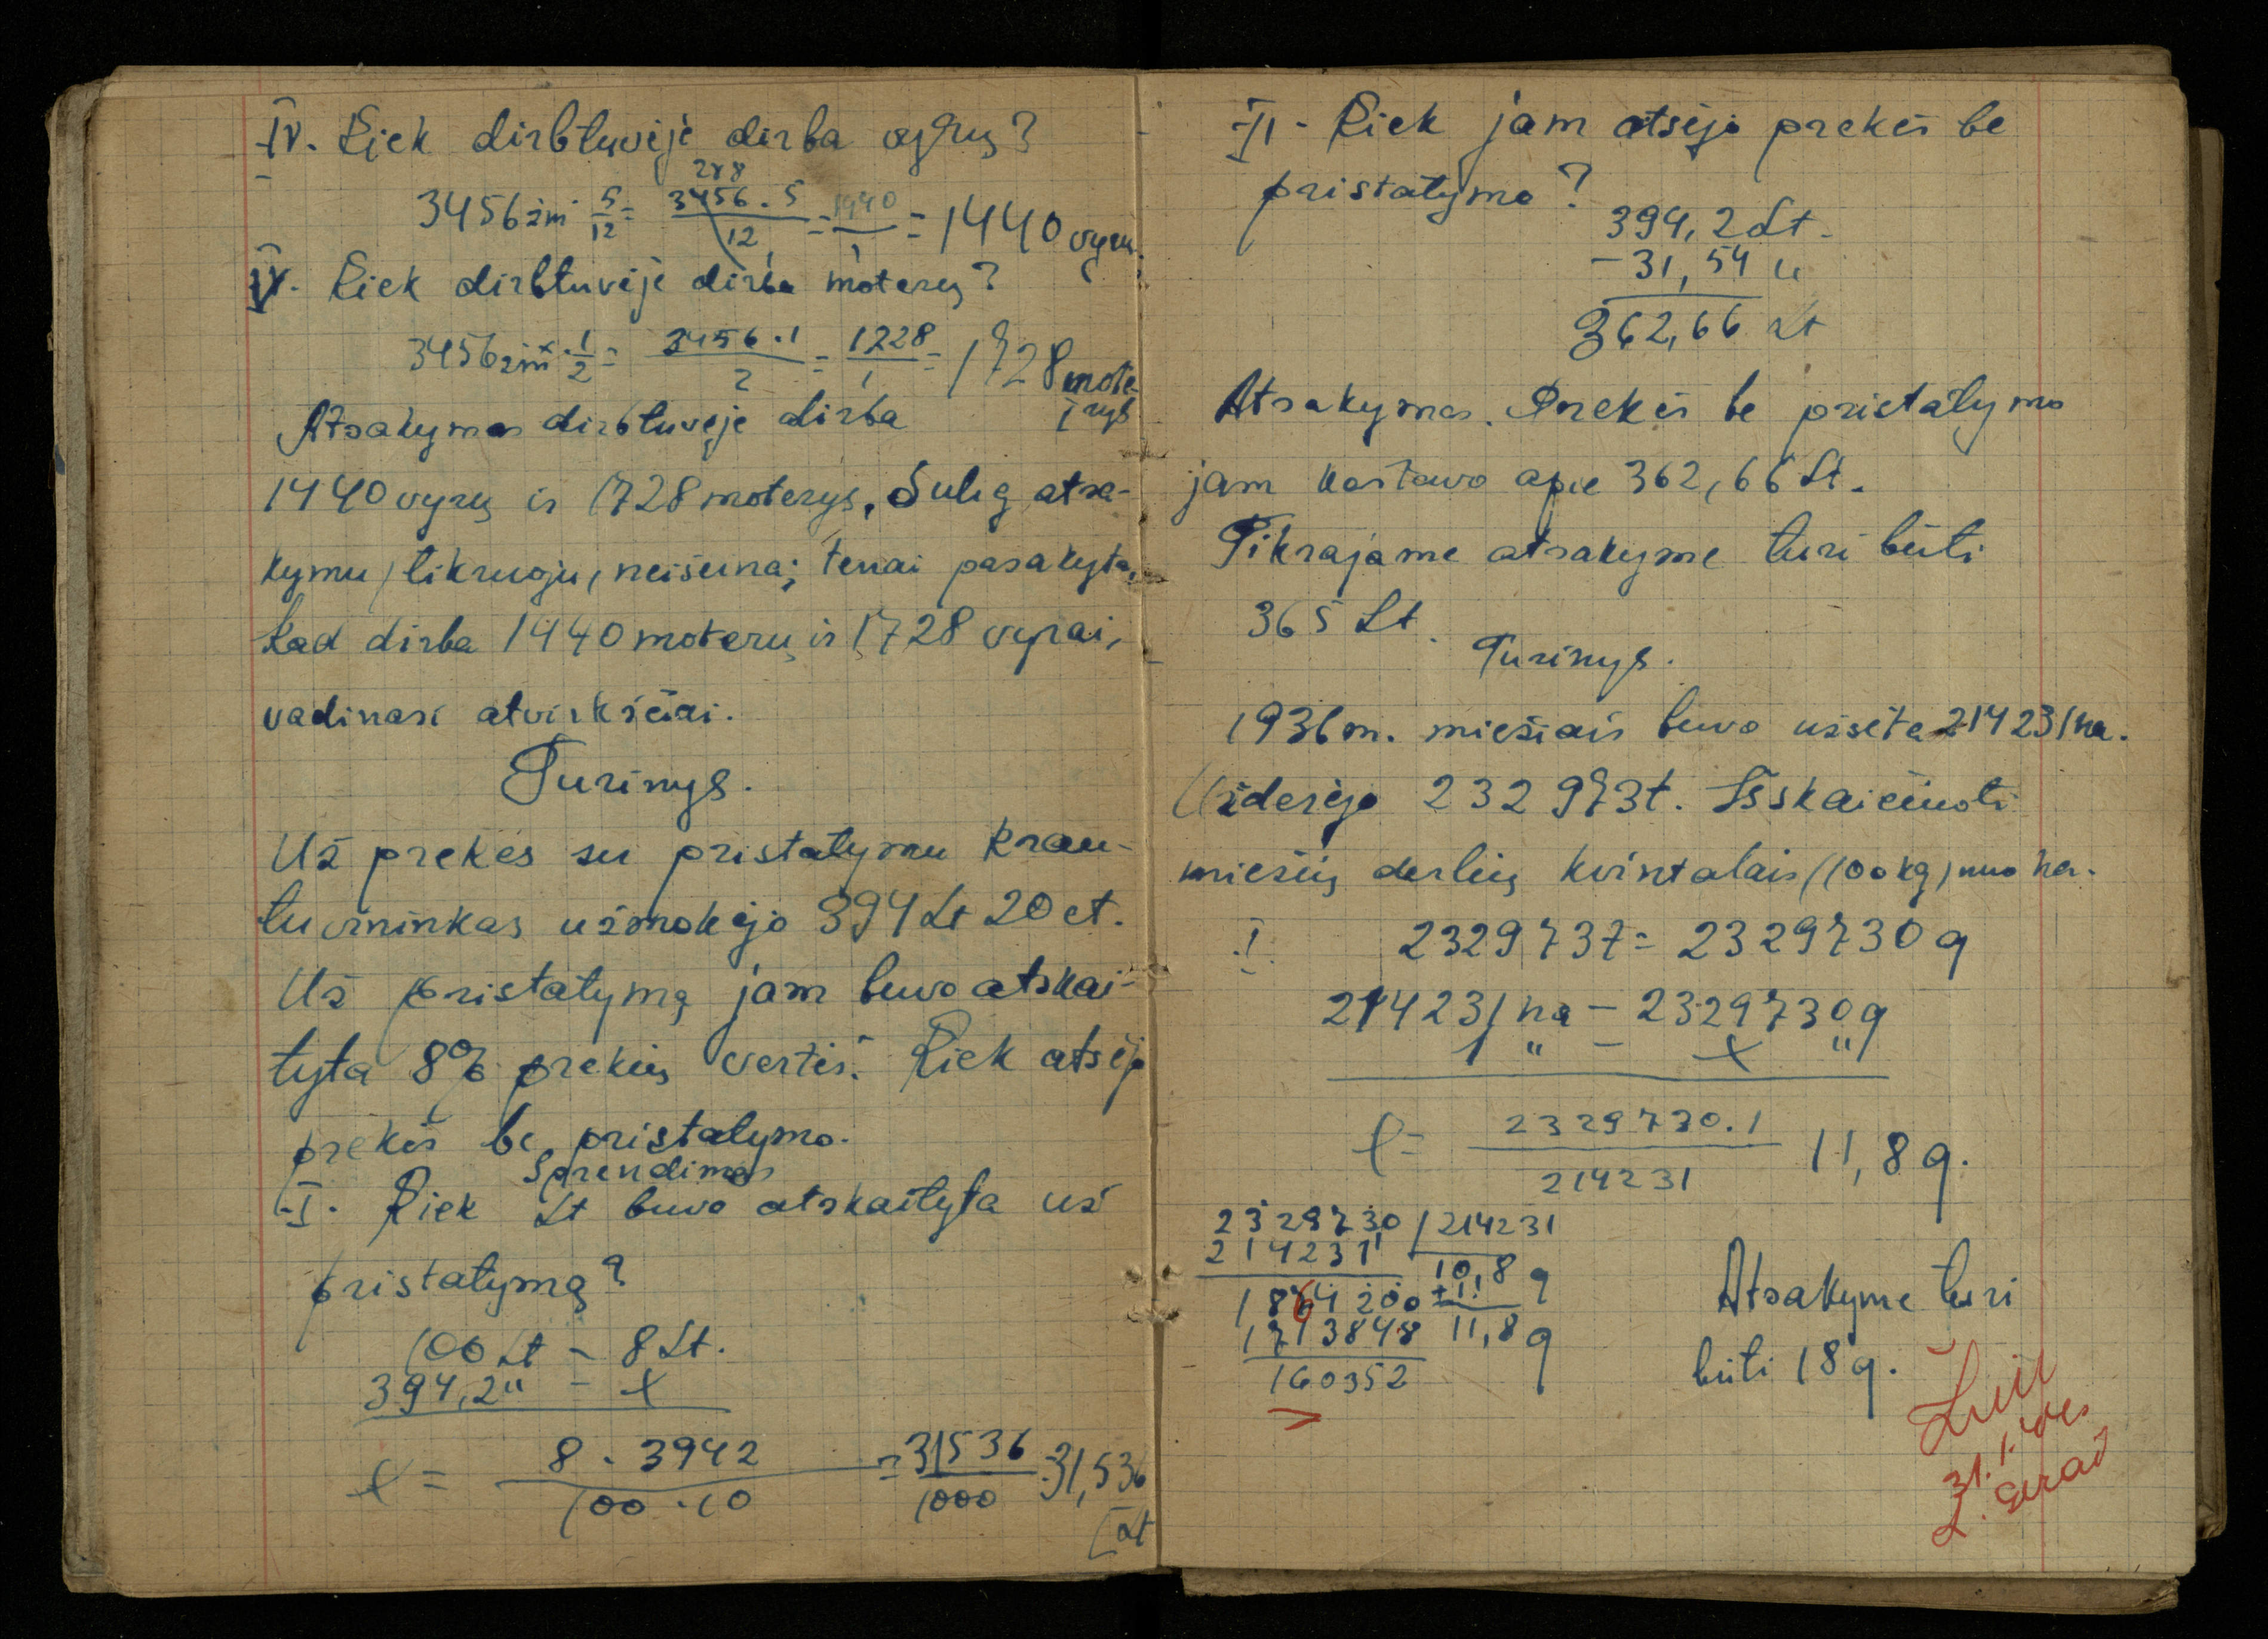 IV. Kiek dirbtuvėje dirba vyrų?
288
3456 žm 5/12 = 3456 . 5 / 12 = 1440 / 1 = 1440 vyrų.
V. Kiek dirbtuvėje dirba moterų?
3456 žm . 1/2 = 3456 . 1 / 2 = 1728 / 1 = 1728 mote-
rys
Atsakymas dirbtuvėje dirba
1440 vyrų ir 1728 moterys. Sulig atsa-
kymu, tikruoju, neišeina; tenai pasakyta,
kad dirba 1440 moterų ir 1728 vyrai,
vadinasi atvirkščiai.
Turinys.
Už prekes su pristatymu krau-
tuvininkas užmokėjo 394 Lt 20 ct.
Už pristatymą jam buvo atskai-
tyta 8% prekių vertės. Kiek atsėjo
prekės be pristatymo.
Sprendimas
I. Kiek Lt buvo atskaityta už
pristatymą?
100 Lt – 8 Lt.
394,2 " – x
x = 8 . 3942 / 100 . 10 = 31536 / 1000 = 31,536
Lt
II - Kiek jam atsėjo prekės be
pristatymo?
394,2 Lt.
– 31,54 "
362,66 Lt
Atsakymas. Prekės be pristatymo
jam kaštavo apie 362,66 Lt.
Tikrajame atsakyme turi būti
365 Lt.
Turinys.
1936 m. miežiais buvo užsėta 214231 ha.
Užderėjo 232973t. Išskaičiuoti
miežių derlių kvintalais (100 kg) nuo ha.
I. 232973t = 2329730 q
214231 ha – 2329730 q
1 " – x "
x = 2329730 . 1 / 214231 11,8 q.
2329730 | 214231
214231 10,8 q
1864200 +1,
1713848 11,8 q
160352
Atsakyme turi
būti 18 q.
31.1.